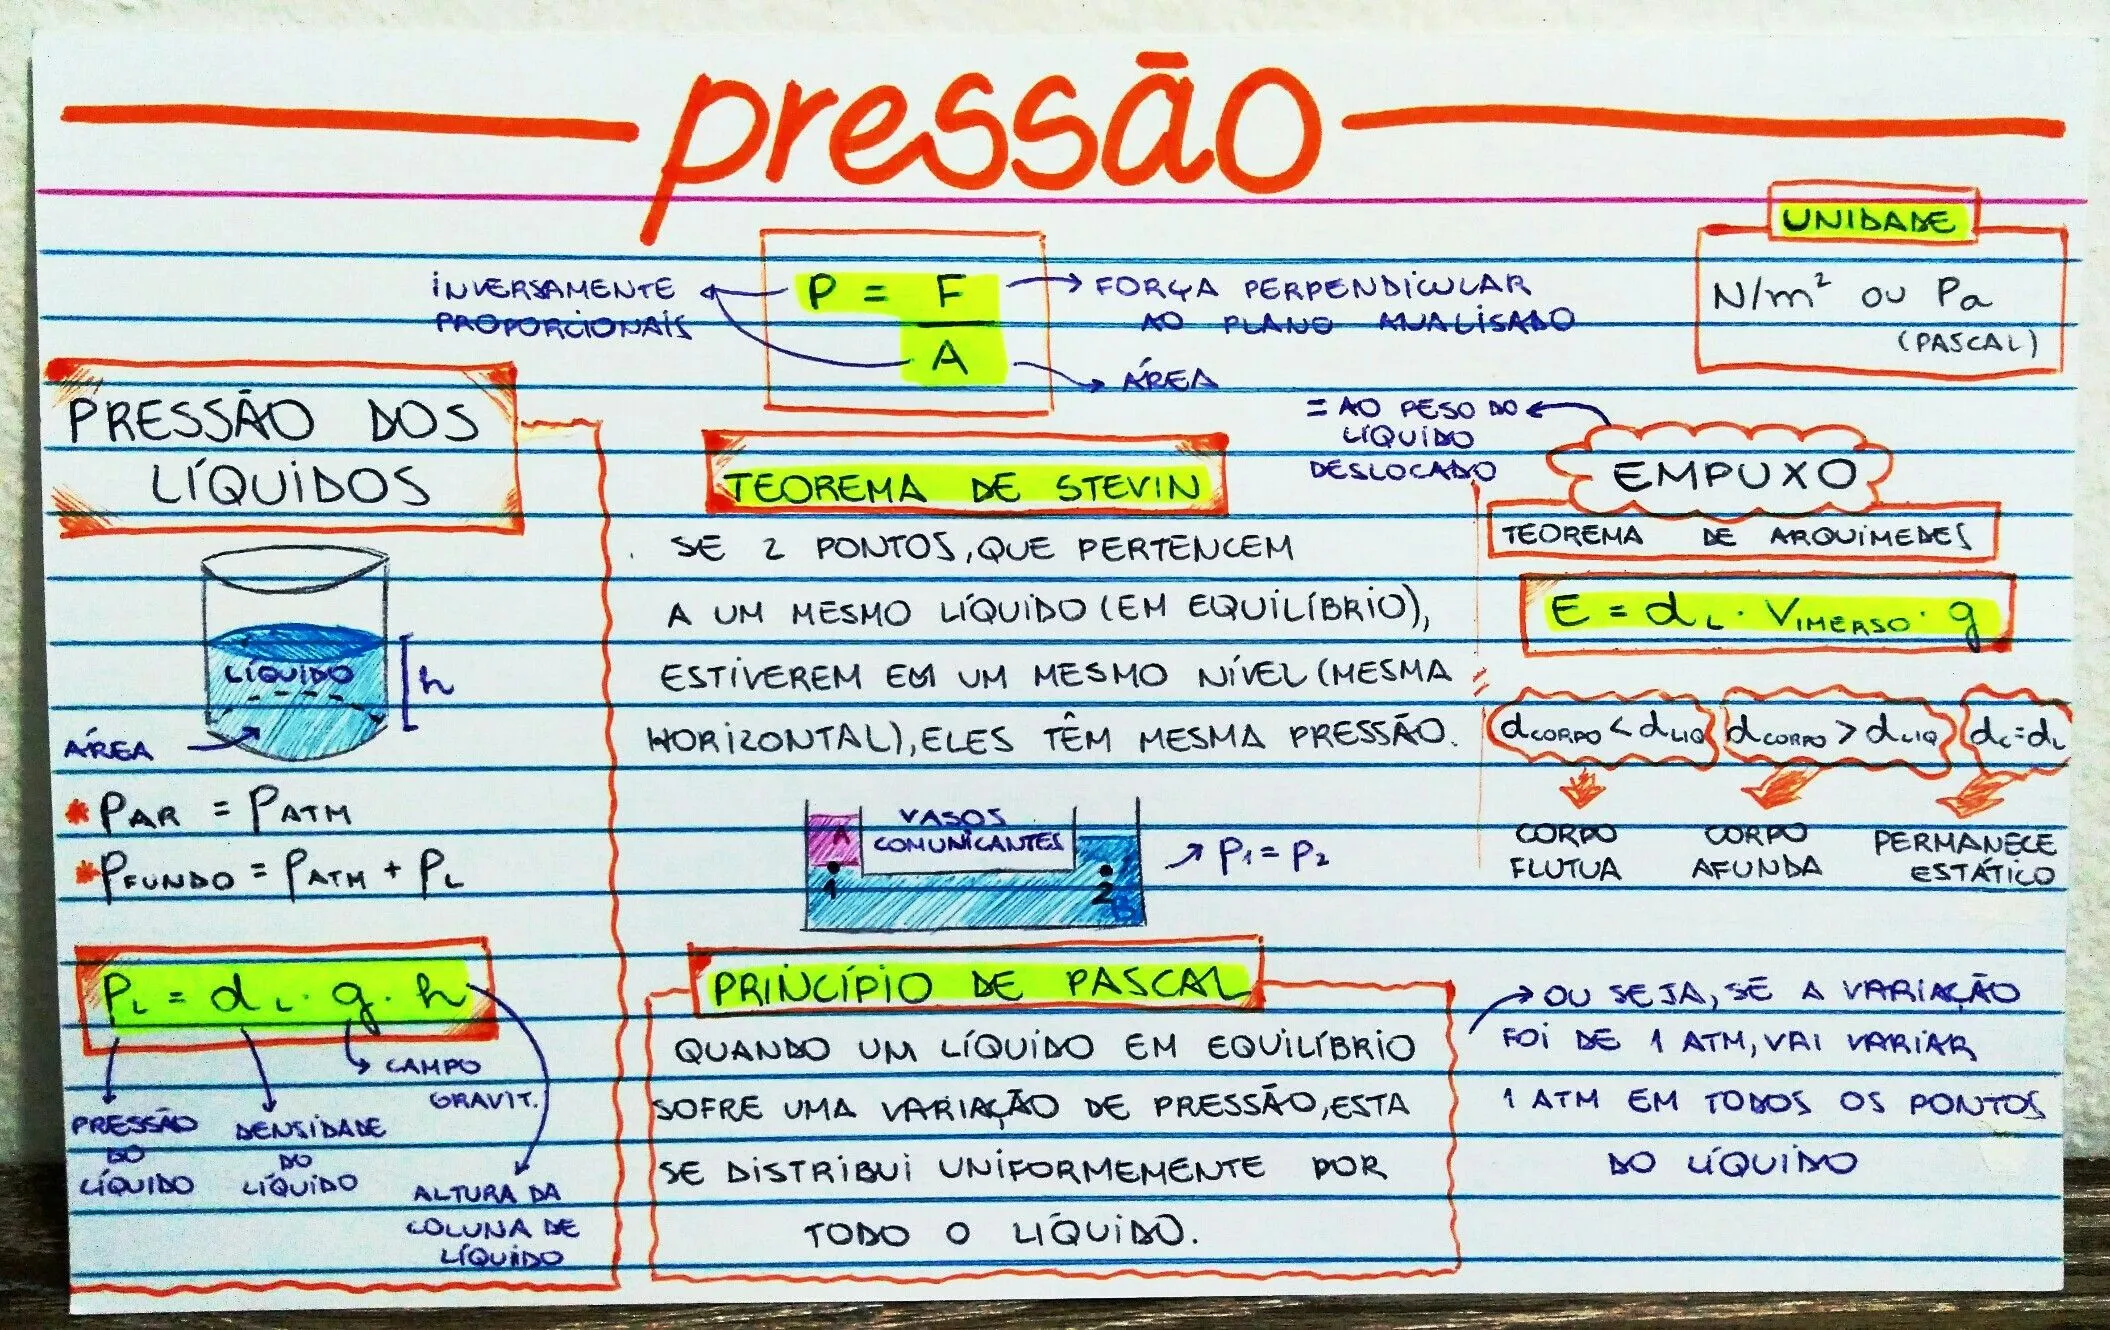 pressão
UNIDADE
N/m² ou Pa
(PASCAL)
INVERSAMENTE
PROPORCIONAIS
P = F
A
FORÇA PERPENDICULAR
AO PLANO ANALISADO
ÁREA
PRESSÃO DOS
LÍQUIDOS
LÍQUIDO
h
ÁREA
* PAR = PATM
* PFUNDO = PATM + PL
PL = dL · g · h
CAMPO
GRAVIT.
PRESSÃO
DO
LÍQUIDO
DENSIDADE
DO
LÍQUIDO
ALTURA DA
COLUNA DE
LÍQUIDO
TEOREMA DE STEVIN
SE 2 PONTOS, QUE PERTENCEM
A UM MESMO LÍQUIDO (EM EQUILÍBRIO),
ESTIVEREM EM UM MESMO NÍVEL (MESMA
HORIZONTAL), ELES TÊM MESMA PRESSÃO.
VASOS
COMUNICANTES
A
1
2
B
P1 = P2
= AO PESO DO
LÍQUIDO
DESLOCADO
EMPUXO
TEOREMA DE ARQUIMEDES
E = dL · VIMERSO · g
dCORPO < dLIQ
dCORPO > dLIQ
dC = dL
CORPO
FLUTUA
CORPO
AFUNDA
PERMANECE
ESTÁTICO
PRINCÍPIO DE PASCAL
QUANDO UM LÍQUIDO EM EQUILÍBRIO
SOFRE UMA VARIAÇÃO DE PRESSÃO, ESTA
SE DISTRIBUI UNIFORMEMENTE POR
TODO O LÍQUIDO.
OU SEJA, SE A VARIAÇÃO
FOI DE 1 ATM, VAI VARIAR
1 ATM EM TODOS OS PONTOS
DO LÍQUIDO